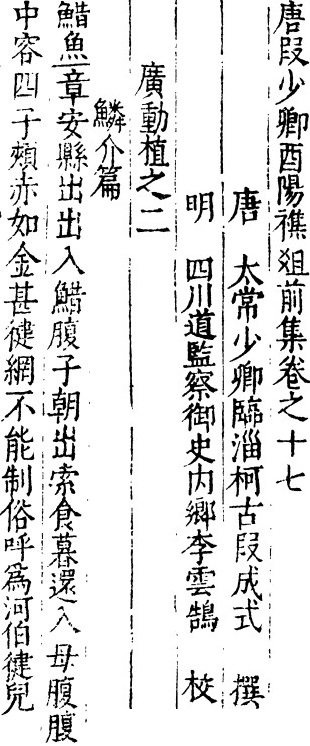 唐段少卿酉陽襍俎前集卷之十七
唐 太常少卿臨淄柯古段成式 撰
明 四川道監察御史内鄉李雲鵠 校
廣動植之二
鱗介篇
鯌魚章安縣出出入鯌腹子朝出索食暮還入母腹腹
中容四子頰赤如金甚徤網不能制俗呼爲河伯徤兒